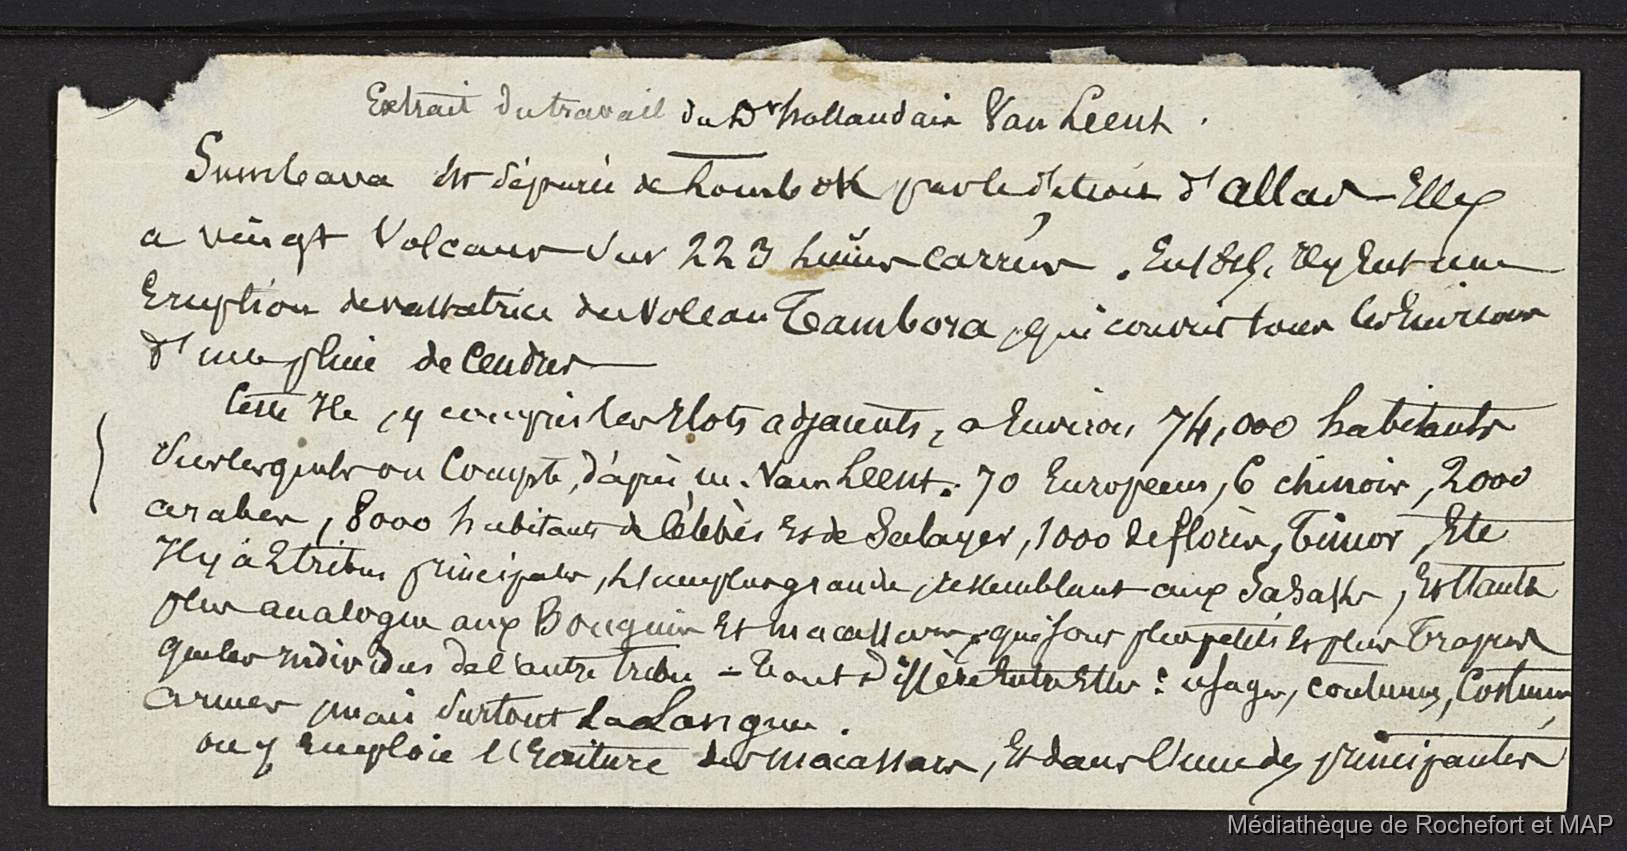 Extrait du travail du Dr hollandais Van Leent.
Sumbava est séparée de Lombok par le détroit d'allas - Elle
a vingt Volcans sur 223 lieües carrées. En 181, il y eut une
Eruption devastatrice du Volcan Tambora, qui couvrit tous les Environs
d'une pluie de Cendres
Cette Ile, y compris les Ilots adjacents, a Environ 74,000 habitants
sur lesquels on Compte, d'après m. Van Leent. 70 Europeens, 6 chinois, 2000
arabes, 8000 habitants de Célèbès et de Salayer, 1000 de florès, Timor, Etc
Il y à 2 tribus principales, l'une plus grande, ressemblant aux Sasaks, et l'autre
plus analogue aux Bouguis et macassars, qui sont plus petits et plus trapus
que les individus de l'autre tribu - Tout diffère Entre Elles : usages, coutumes, Costumes,
armes, mais surtout la Langue.
on y Emploie l'Ecriture des macassars, Et dans l'une des principautés
Médiathèque de Rochefort et MAP